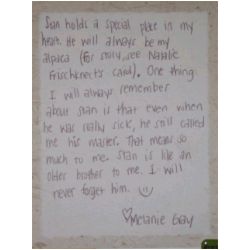 Stan holds a special place in my
heart. He will always be my
alpaca (for story, see Natalie
Frischknecht's card). One thing
I will always remember
about Stan is that even when
he was really sick, he still called
me his master. That means so
much to me. Stan is like an
older brother to me. I will
never forget him.
Melanie Gray